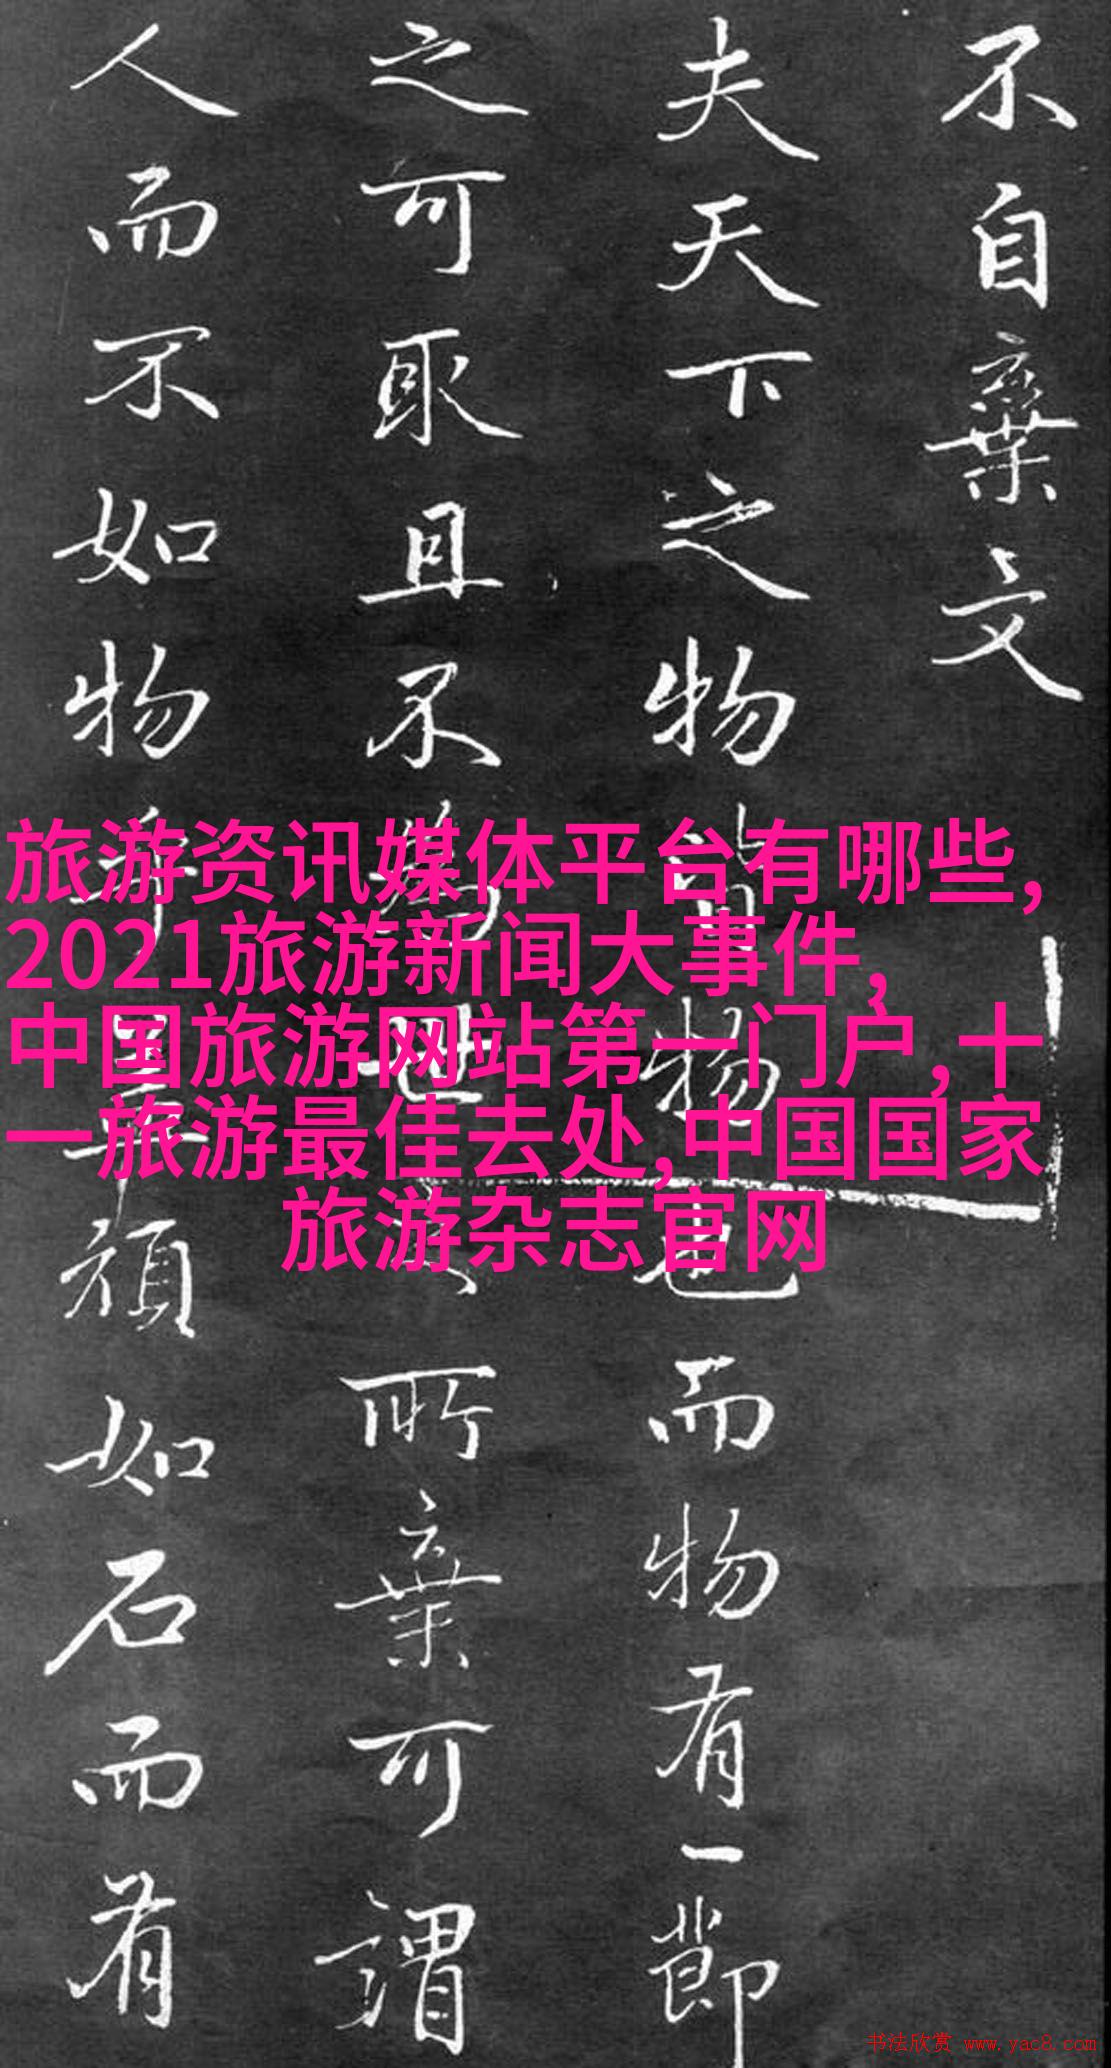 不自棄文
夫天下之物皆物也而物有一節
之可取且不為世之所棄可謂
人而不如物乎蓋頑如石而有
旅游资讯媒体平台有哪些,
2021旅游新闻大事件,
中国旅游网站第一门户,十
一旅游最佳去处,中国国家
旅游杂志官网
书法欣赏 www.yac8.com